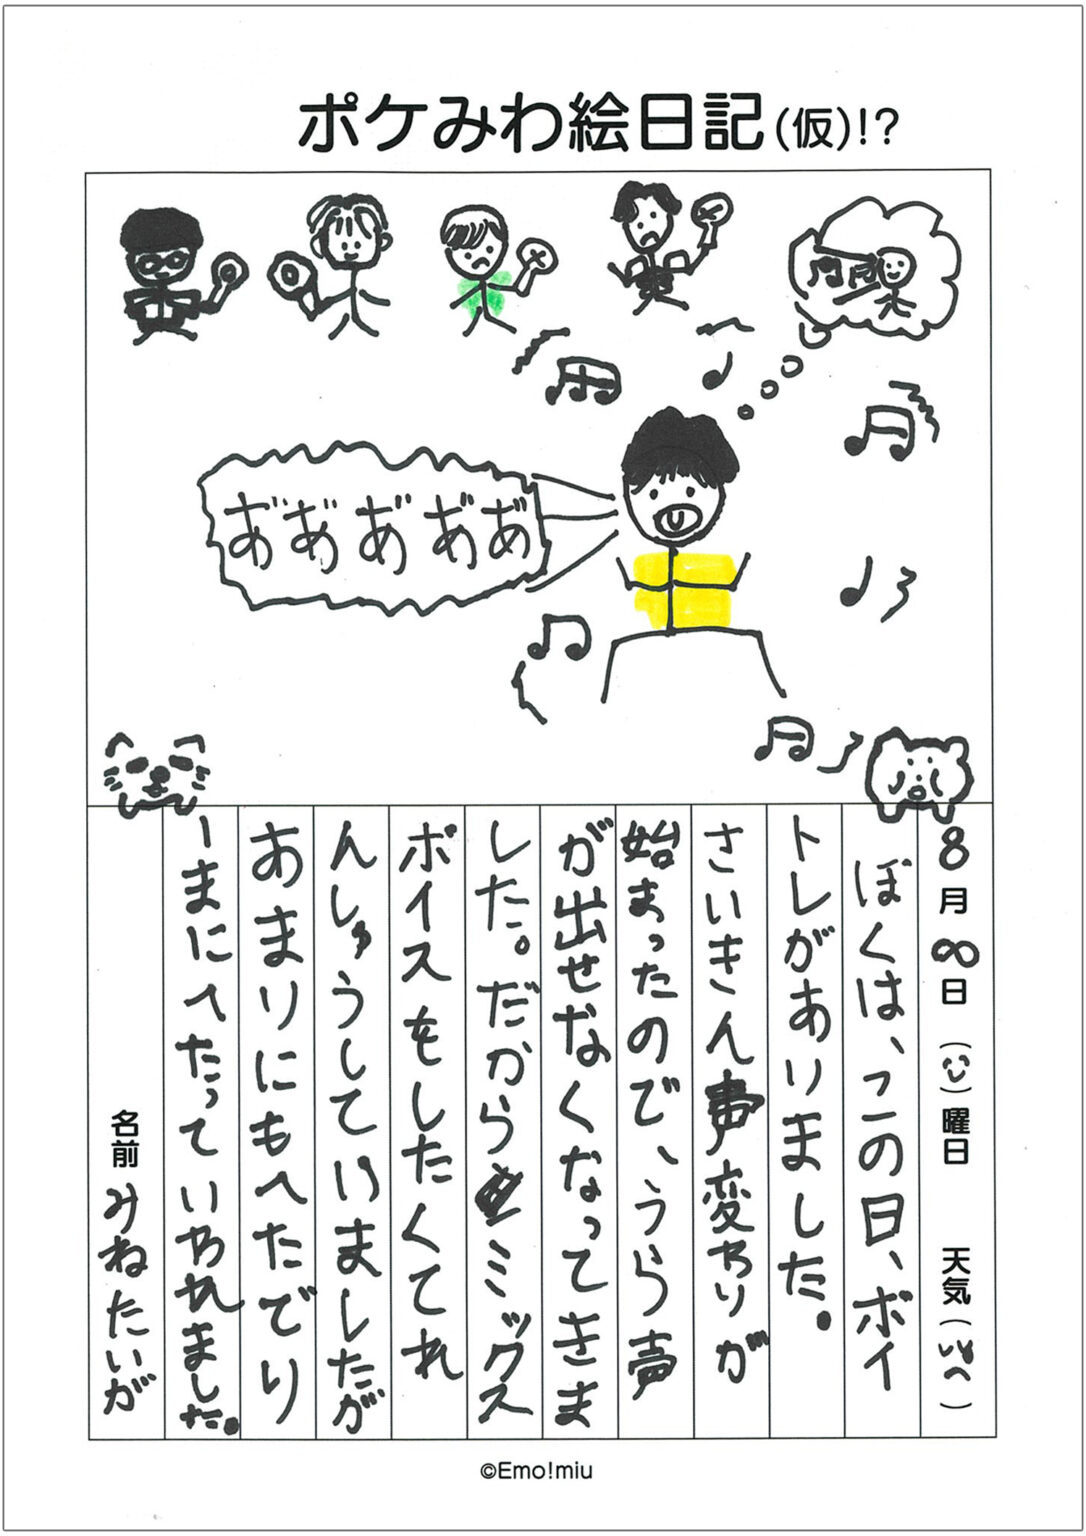 ポケみわ絵日記(仮)!?
あ゛あ゛あ゛あ゛あ゛
8月∞日( )曜日 天気( )
ぼくは、この日、ボイ
トレがありました。
さいきん声変わりが
始まったので、うら声
が出せなくなってきま
した。だからミックス
ボイスをしたくてれ
んしゅうしていましたが
あまりにもへたでり
ーまにへたっていわれました。
名前 みねたいが
©Emo!miu